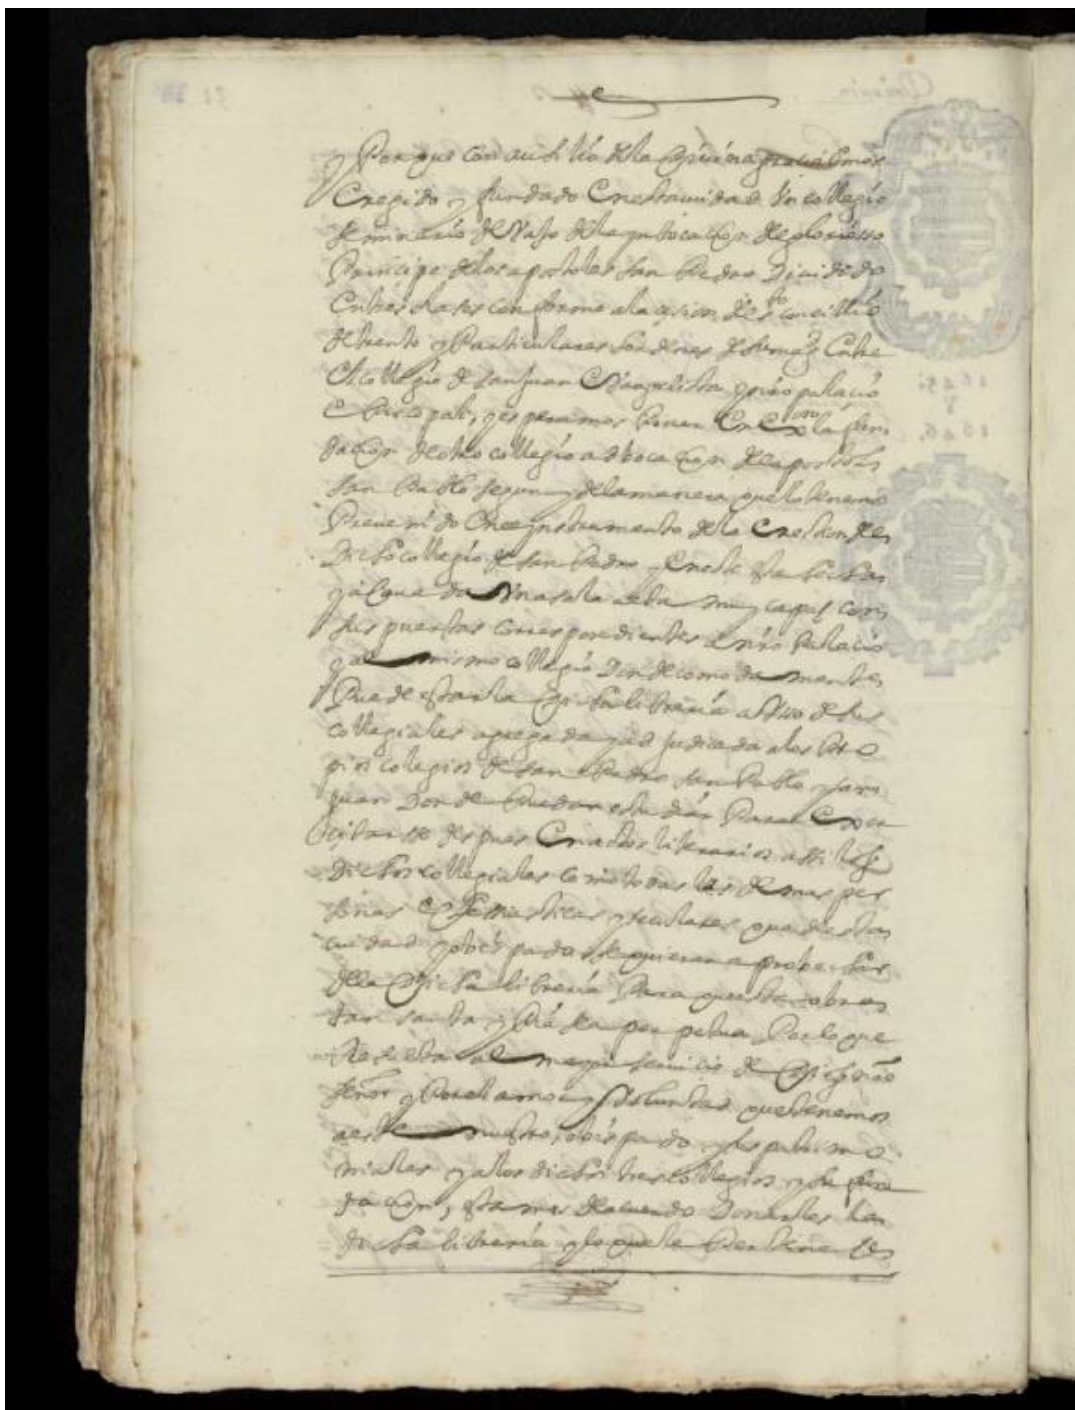 y Porque con auxilio de la divina gracia emos
Eregido y fundado En esta ciudad Un collegio
seminario de Vaso de la ynbocacion de glorioso
Principe de los apostoles san Pedro Dividido
En tres clases conforme a la de el sto concilio
de trento y Particulares hordenes de su mag. Entre
El collegio de san Juan Evangelista y nro palacio
Episcopal, y esperamos Poner En Exon la fun
dacion de otro collegio adbocacion del apostol
san Pablo segun y de la manera que lo tenemos
Prevenido En el ynstrumento de la Ereccion del
Dicho collegio de san Pedro y En este esta fecha
y acavada Una sala alta muy capaz con
sus puertas correspondientes a nro Palacio
y al mismo collegio Donde comodamente
Puede estar la dicha libreria a Uso de sus
collegiales agregada y adjudicada a los Pro
pios colegios de san Pedro san Pablo y san
Juan Donde Puedan estudiar Para Exer
citarse despues En actos literarios assi los
Dichos collegiales como todas las demas per
sonas Eclesiasticas y seculares que de esta
ciudad y obispado se quieran aprobechar
de la dicha libreria Para que esta obra
tan santa y Pia sea perpetua Por lo que
Resulta al mayor servicio de Dios nro
señor y Por el amor y Voluntad que tenemos
a este nuestro obispado y sus patrimo
niales y a los dichos tres collegios y su fun
dacion, estamos de acuerdo Donarles la
dicha libreria y lo que le Perteneciere
1645
Y
1646